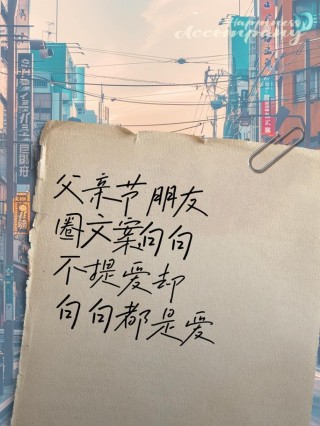 Happiness
Accompany
父亲节朋友
圈文案句句
不提爱却
句句都是爱